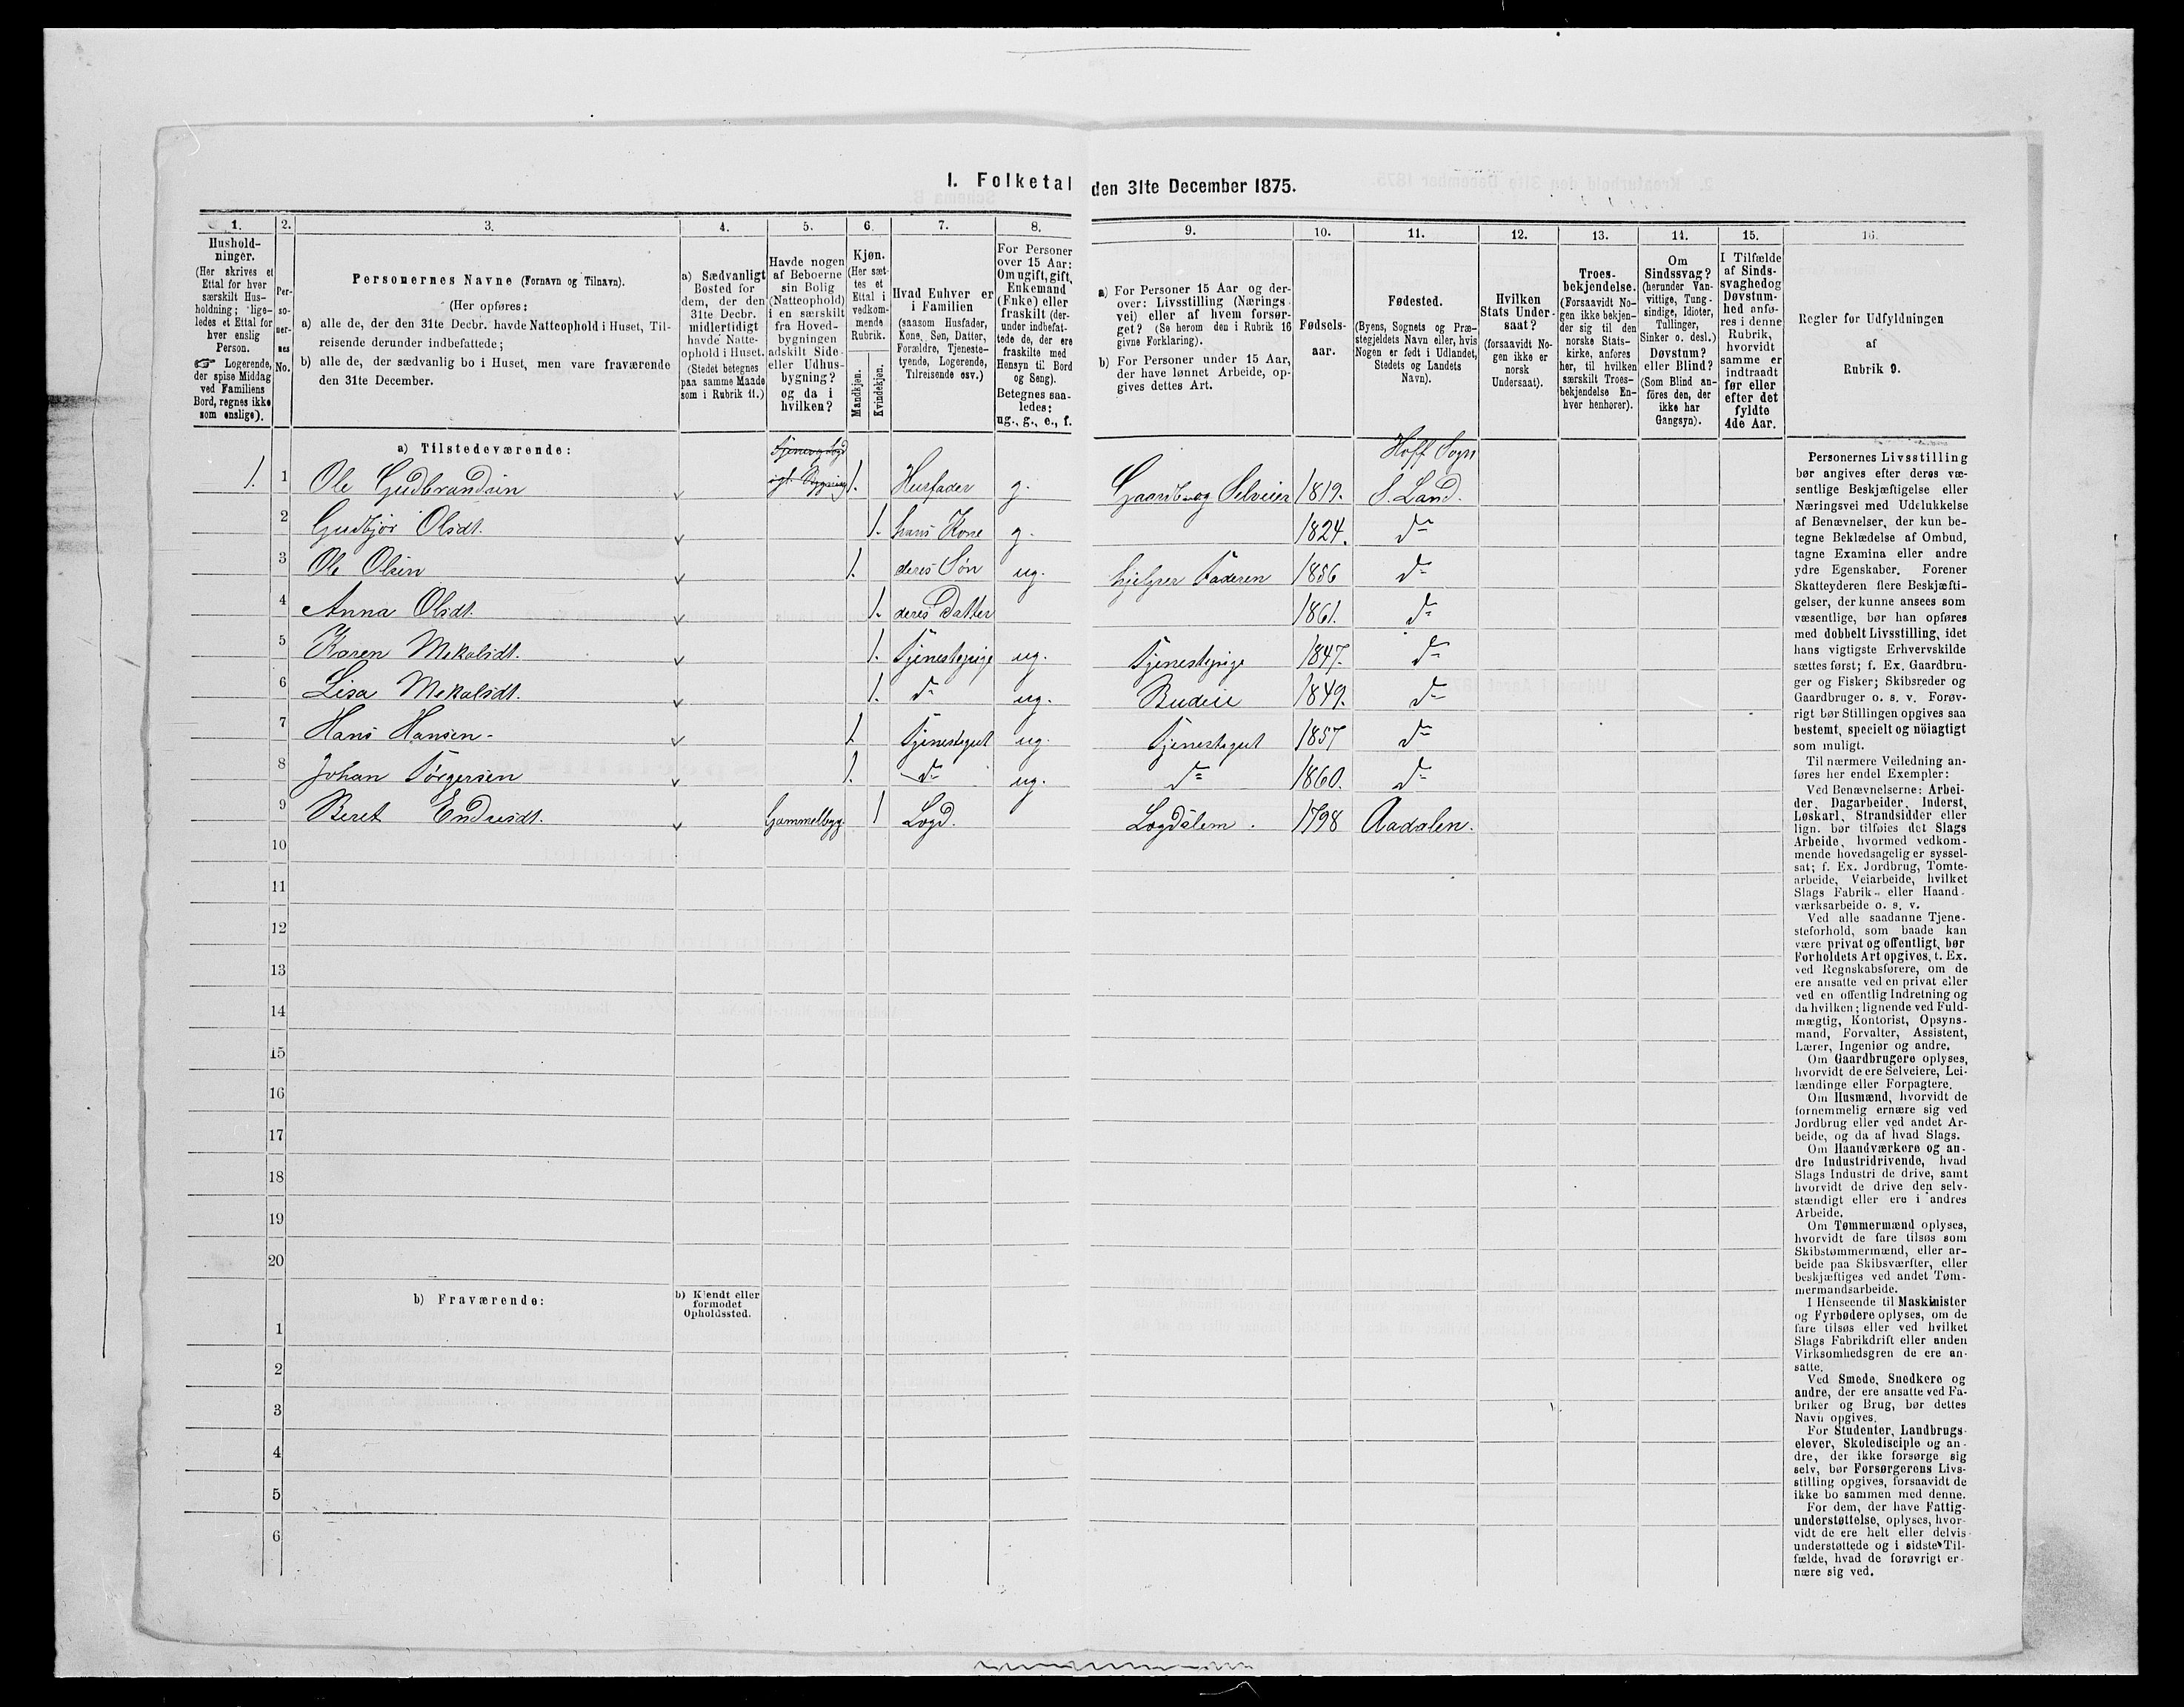 I. Folketal den 31te December 1875.
1. 2. 3. 4. 5. 6. 7. 8. 9. 10. 11. 12. 13. 14. 15. 16.
Hushold-
ninger.
(Her skrives et
Ettal for hver
særskilt Hus-
holdning; lige-
ledes et Ettal for
hver enslig
Person.
☞ Logerende,
der spise Middag
ved Familiens
Bord, regnes ikke
som enslige).
Per-
so-
ner-
nes
No.
Personernes Navne (Fornavn og Tilnavn).
(Her opføres:
a) alle de, der den 31te Decbr. havde Natteophold i Huset, Til-
reisende derunder indbefattede;
b) alle de, der sædvanlig bo i Huset, men vare fraværende
den 31te December.
a) Sædvanligt
Bosted for
dem, der den
31te Decbr.
midlertidigt
havde Natte-
ophold i Huset.
(Stedet betegnes
paa samme Maade
som i Rubrik 11.)
Havde nogen
af Beboerne
sin Bolig
(Natteophold)
i en særskilt
fra Hoved-
bygningen
adskilt Side-
eller Udhus-
bygning?
og da i
hvilken?
Kjøn.
(Her sæt-
tes et
Ettal i
vedkom-
mende
Rubrik.
Mandkjøn.
Kvindekjøn.
Hvad Enhver er
i Familien
(saasom Husfader,
Kone, Søn, Datter,
Forældre, Tjeneste-
tyende, Logerende,
Tilreisende osv.)
For Personer
over 15 Aar:
Om ugift, gift,
Enkemand
(Enke) eller
fraskilt (der-
under indbefat-
tede de, der ere
fraskilte med
Hensyn til Bord
og Seng).
Betegnes saa-
ledes:
ug., g., e., f.
a) For Personer 15 Aar og der-
over: Livsstilling (Nærings-
vei) eller af hvem forsør-
get? (Se herom den i Rubrik 16
givne Forklaring).
b) For Personer under 15 Aar,
der have lønnet Arbeide, op-
gives dettes Art.
Fødsels-
aar.
Fødested.
(Byens, Sognets og Præ-
stegjeldets Navn eller, hvis
Nogen er født i Udlandet,
Stedets og Landets
Navn).
Hvilken
Stats Under-
saat?
(forsaavidt No-
gen ikke er
norsk
Undersaat).
Troes-
bekjendelse.
(Forsaavidt No-
gen ikke bekjen-
der sig til den
norske Stats-
kirke, anføres
her, til hvilken
særskilt Troes-
bekjendelse En-
hver henhører).
Om
Sindssvag?
(herunder Van-
vittige, Tung-
sindige, Idioter,
Tullinger,
Sinker o. desl.)
Døvstum?
eller Blind?
(Som Blind an-
føres den, der
ikke har
Gangsyn).
I Tilfælde
af Sinds-
svaghedog
Døvstum-
hed anfø-
res i denne
Rubrik,
hvorvidt
samme er
indtraadt
før eller
efter det
fyldte
4de Aar.
Regler for Udfyldningen
af
Rubrik 9.
a) Tilstedeværende:
Hoff Sogn
1. 1 Ole Gudbrandsen 1. Husfader g. Gaardb. og Selveier 1819. S. Land.
2 Gudbjør Olsdt. 1. hans Kone g. 1824. do
3 Ole Olsen 1. deres Søn ug. hjelper Faderen 1856 do
4 Anna Olsdt. 1. deres Datter 1861. do
5 Karen Mekalsdt. 1. Tjenestepige ug. Tjenestepige 1847. do
6 Lisa Mekalsdt. 1. do ug. Budeie 1849. do
7 Hans Hansen 1 Tjenestegut ug. Tjenestegut 1857 do
8 Johan Torgersen 1. do ug. do 1860. do
9 Beret Endresdt. Gammelbyg. 1 Logd. Lægdslem. 1798 Aadalen.
10
11
12
13
14
15
16
17
18
19
20
b) Fraværende:
b) Kjendt eller
formodet
Opholdssted.
1
2
3
4
5
6
Personernes Livsstilling
bør angives efter deres væ-
sentlige Beskjæftigelse eller
Næringsvei med Udelukkelse
af Benævnelser, der kun be-
tegne Beklædelse af Ombud,
tagne Examina eller andre
ydre Egenskaber. Forener
Skatteyderen flere Beskjæfti-
gelser, der kunne ansees som
væsentlige, bør han opføres
med dobbelt Livsstilling, idet
hans vigtigste Erhvervskilde
sættes først; f. Ex. Gaardbru-
ger og Fisker; Skibsreder og
Gaardbruger o. s. v. Forøv-
rigt bør Stillingen opgives saa
bestemt, specielt og nöiagtigt
som muligt.
Til nærmere Veiledning an-
føres her endel Exempler:
Ved Benævnelserne: Arbei-
der, Dagarbeider, Inderst,
Løskarl, Strandsidder eller
lign. bør tilføies det Slags
Arbeide, hvormed vedkom-
mende hovedsagelig er syssel-
sat; f. Ex. Jordbrug, Tomte-
arbeide, Veiarbeide, hvilket
Slags Fabrik- eller Haand-
værksarbeide o. s. v.
Ved alle saadanne Tjene-
steforhold, som baade kan
være privat og offentligt, bør
Forholdets Art opgives, t. Ex.
ved Regnskabsførere, om de
ere ansatte ved en privat eller
ved en offentlig Indretning og
da hvilken; lignende ved Fuld-
mægtig, Kontorist, Opsyns-
mand, Forvalter, Assistent,
Lærer, Ingeniør og andre.
Om Gaardbrugere oplyses,
hvorvidt de ere Selveiere, Lei-
lændinge eller Forpagtere.
Om Husmænd, hvorvidt de
fornemmelig ernære sig ved
Jordbrug eller ved andet Ar-
beide, og da af hvad Slags.
Om Haandværkere og an-
dre Industridrivende, hvad
Slags Industri de drive, samt
hvorvidt de drive den selv-
stændigt eller ere i andres
Arbeide.
Om Tømmermænd oplyses,
hvorvidt de fare tilsøs som
Skibstømmermænd, eller ar-
beide paa Skibsværfter, eller
beskjæftiges ved andet Tøm-
mermandsarbeide.
I Henseende til Maskinister
og Fyrbødere oplyses, om de
fare tilsøs eller ved hvilket
Slags Fabrikdrift eller anden
Virksomhedsgren de ere an-
satte.
Ved Smede, Snedkere og
andre, der ere ansatte ved Fa-
briker og Brug, bør dettes
Navn opgives.
For Studenter, Landbrugs-
elever, Skoledisciple og an-
dre, der ikke forsørge sig
selv, bør Forsørgerens Livs-
stilling opgives, forsaavidt de
ikke bo sammen med denne.
For dem, der have Fattig-
understøttelse, oplyses, hvor-
vidt de ere helt eller delvis
understøttede og i sidste Til-
fælde, hvad de forøvrigt er-
nære sig ved.